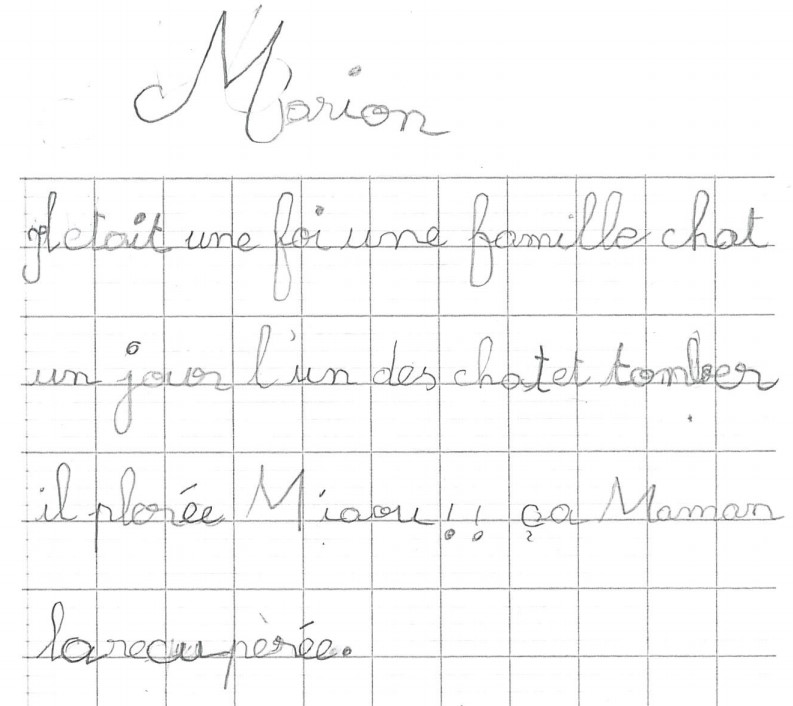 Marion
il etait une foi une famille chat
un jour l'un des chatet tomber
il plorée Miaou!! ça Maman
larecupèrée.